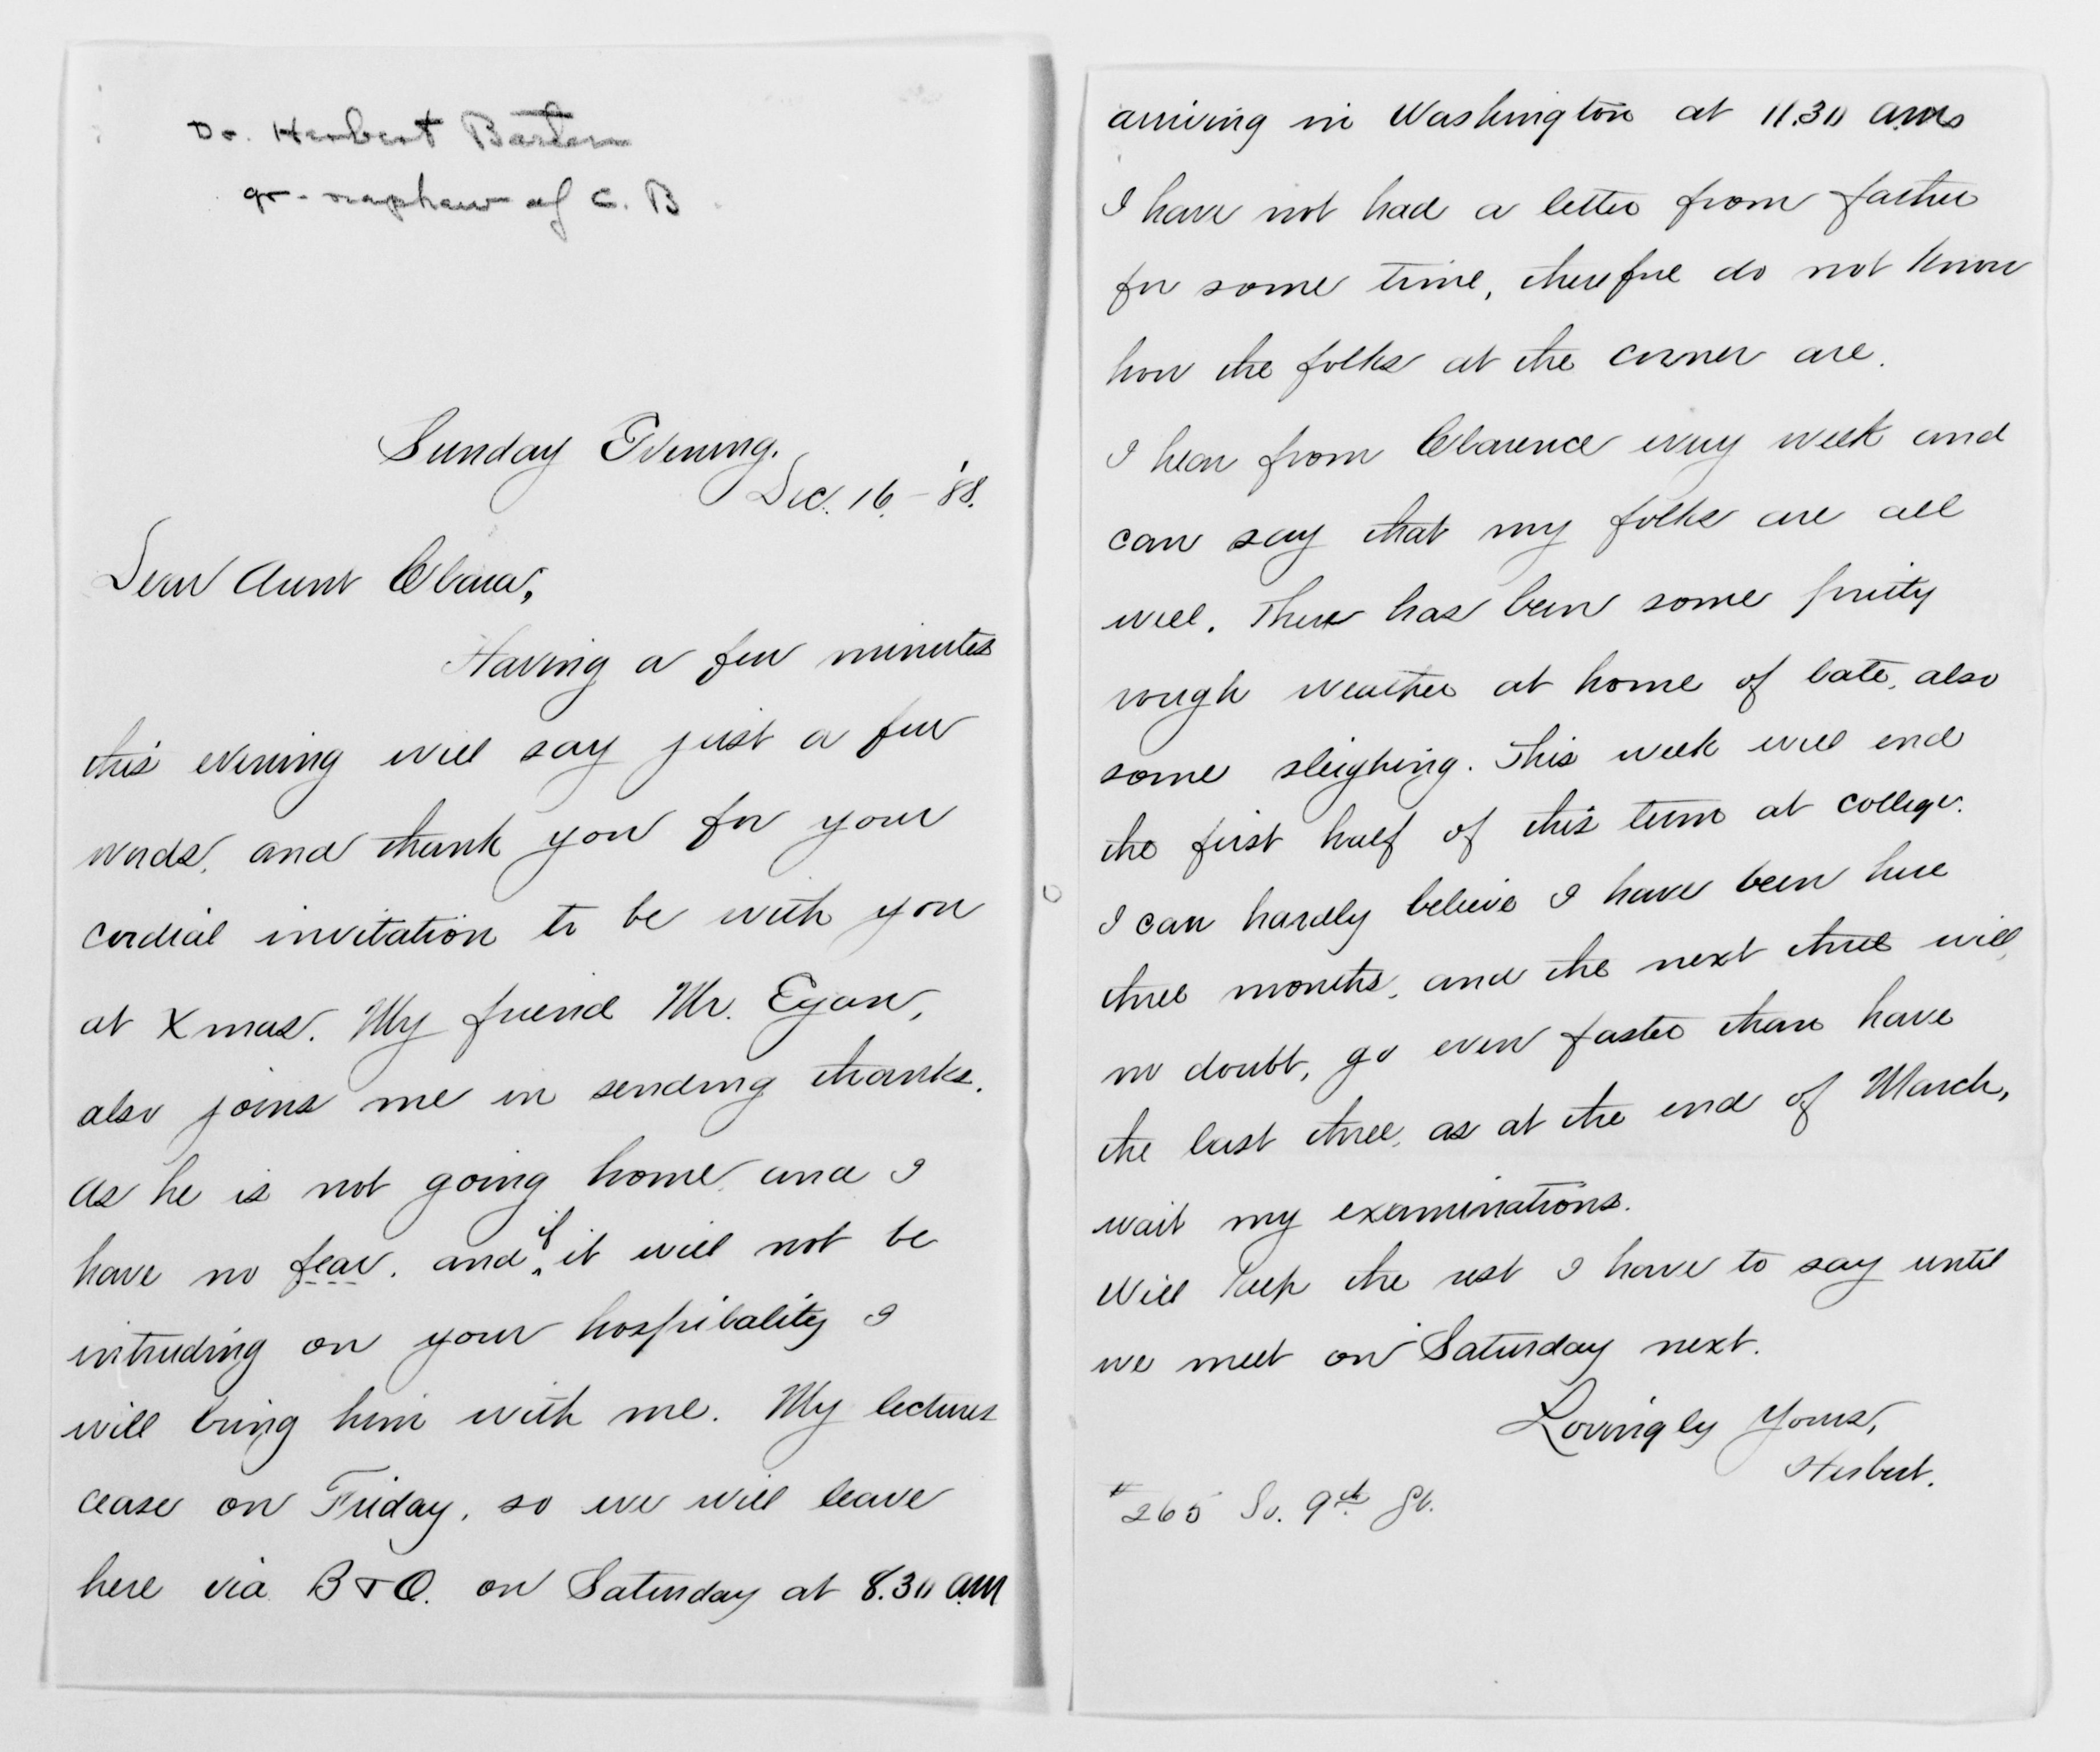 Dr. Herbert Barton
gr-nephew of C. B
Sunday Evening.
Dec. 16 - '88.
Dear Aunt Clara,
Having a few minutes
this evening will say just a few
words, and thank you for your
cordial invitation to be with you
at Xmas. My friend Mr. Egan,
also joins me in sending thanks.
As he is not going home and I
have no fear, and if it will not be
intruding on your hospitality I
will bring him with me. My lectures
cease on Friday, so we will leave
here via B & O. on Saturday at 8.30 am
arriving in Washington at 11.30 am
I have not had a letter from father
for some time, therefore do not know
how the folks at the corner are.
I hear from Clarence every week and
can say that my folks are all
well. There has been some pretty
rough weather at home of late, also
some sleighing. This week will end
the first half of this term at college.
I can hardly believe I have been here
three months, and the next three will,
no doubt, go even faster than have
the last three, as at the end of March,
wait my examinations.
Will keep the rest I have to say until
we meet on Saturday next.
Lovingly Yours,
Herbert.
#265 So. 9th St.